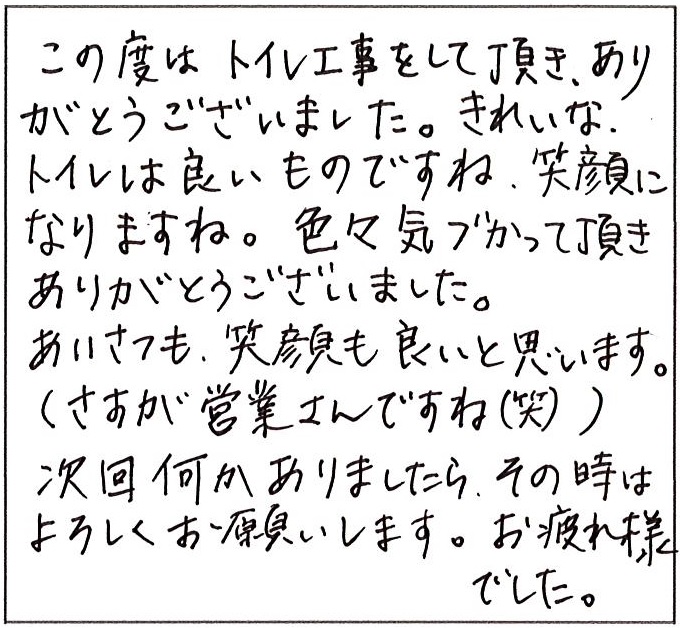 この度はトイレ工事をして頂き、あり
がとうございました。きれいな、
トイレは良いものですね、笑顔に
なりますね。色々気づかって頂き
ありがとうございました。
あいさつも、笑顔も良いと思います。
(さすが営業さんですね(笑))
次回何かありましたら、その時は
よろしくお願いします。お疲れ様
でした。